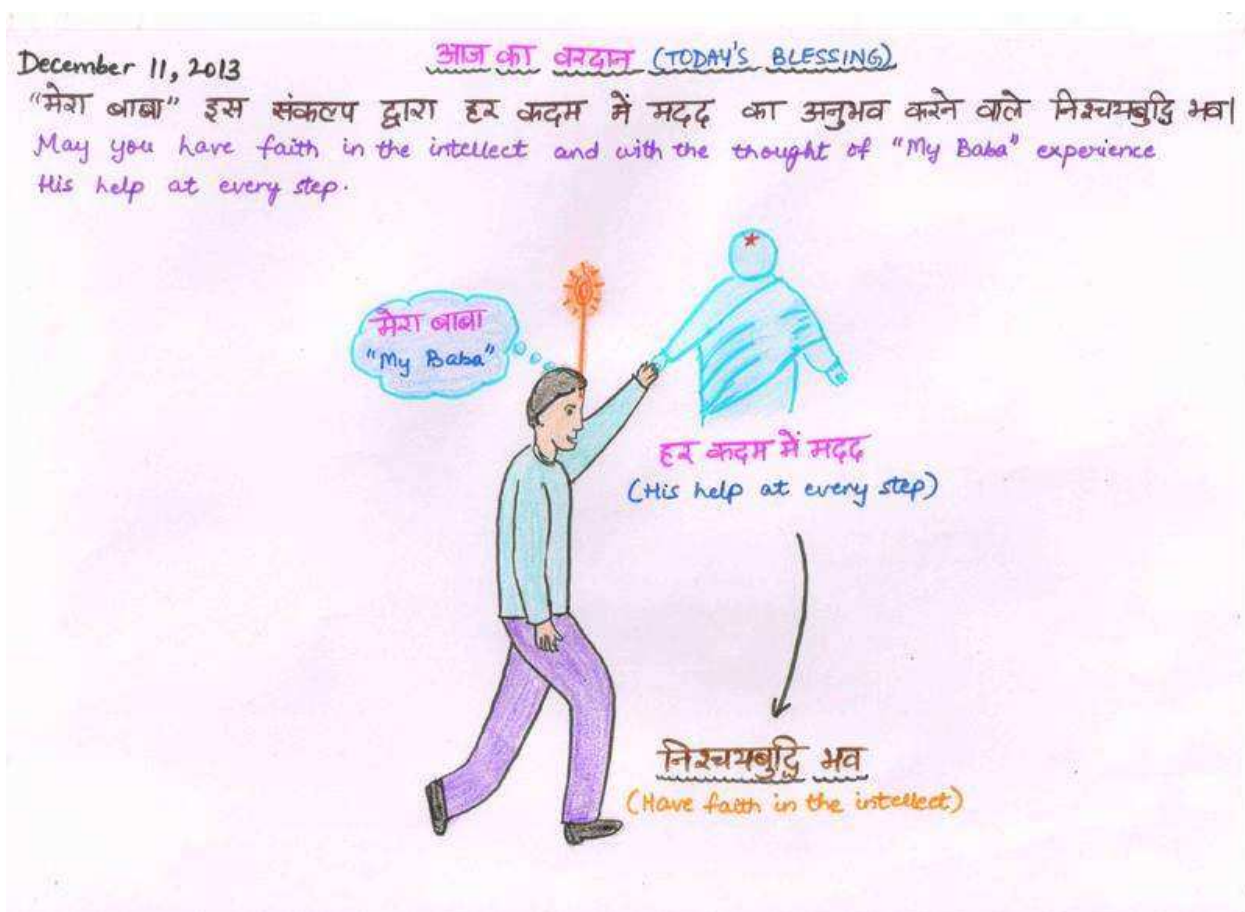 December 11, 2013
आज का वरदान (TODAY'S BLESSING)
"मेरा बाबा" इस संकल्प द्वारा हर कदम में मदद का अनुभव करने वाले निश्चयबुद्धि भव|
May you have faith in the intellect and with the thought of "My Baba" experience
His help at every step.
मेरा बाबा
"My Baba"
हर कदम में मदद
(His help at every step)
निश्चयबुद्धि भव
(Have faith in the intellect)